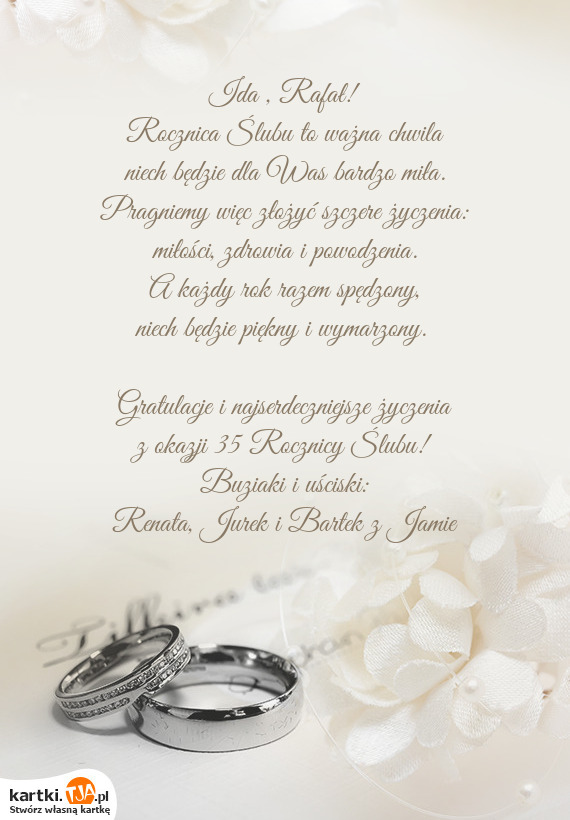 Ida , Rafał!
Rocznica Ślubu to ważna chwila
niech będzie dla Was bardzo miła.
Pragniemy więc złożyć szczere życzenia:
miłości, zdrowia i powodzenia.
A każdy rok razem spędzony,
niech będzie piękny i wymarzony.
Gratulacje i najserdeczniejsze życzenia
z okazji 35 Rocznicy Ślubu!
Buziaki i uściski:
Renata, Jurek i Bartek z Jamie
kartki.TJA.pl
Stwórz własną kartkę